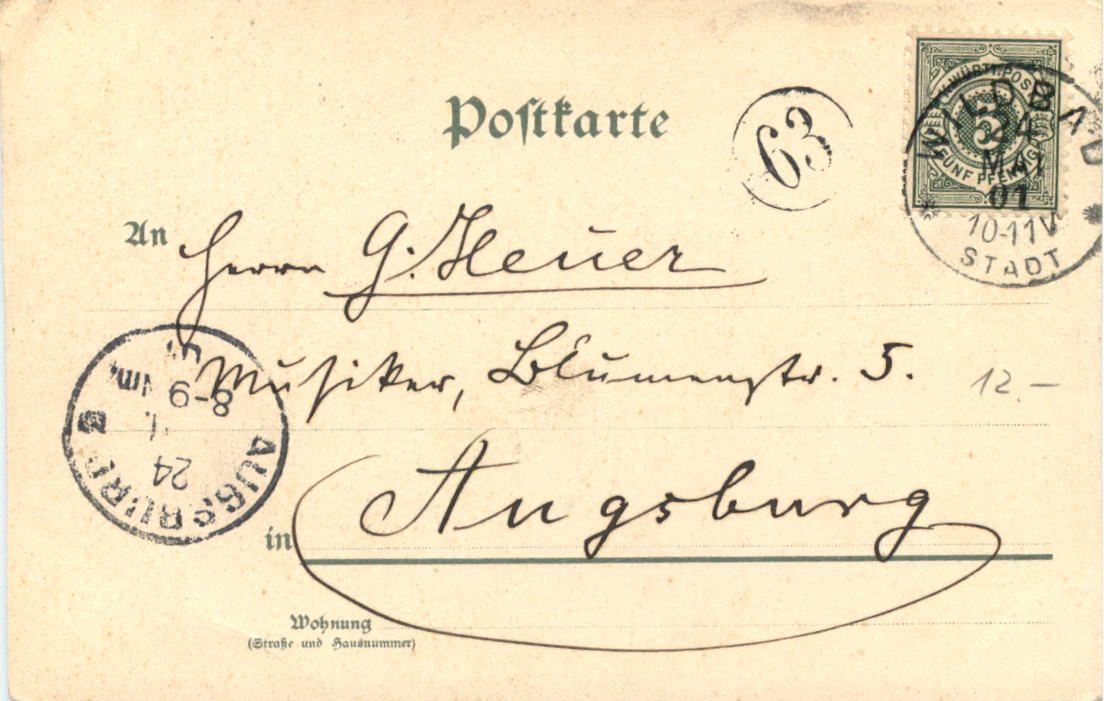 Postkarte
63
K. WÜRTT. POST
5
FÜNF PFENNIG
WILDBAD
24
MAI
01
10-11V
STADT
An Herrn G. Heuer
Musiker, Blumenstr. 5.
12.—
in Augsburg
AUGSBURG 2
24
8-9 Nm.
Wohnung
(Straße und Hausnummer)